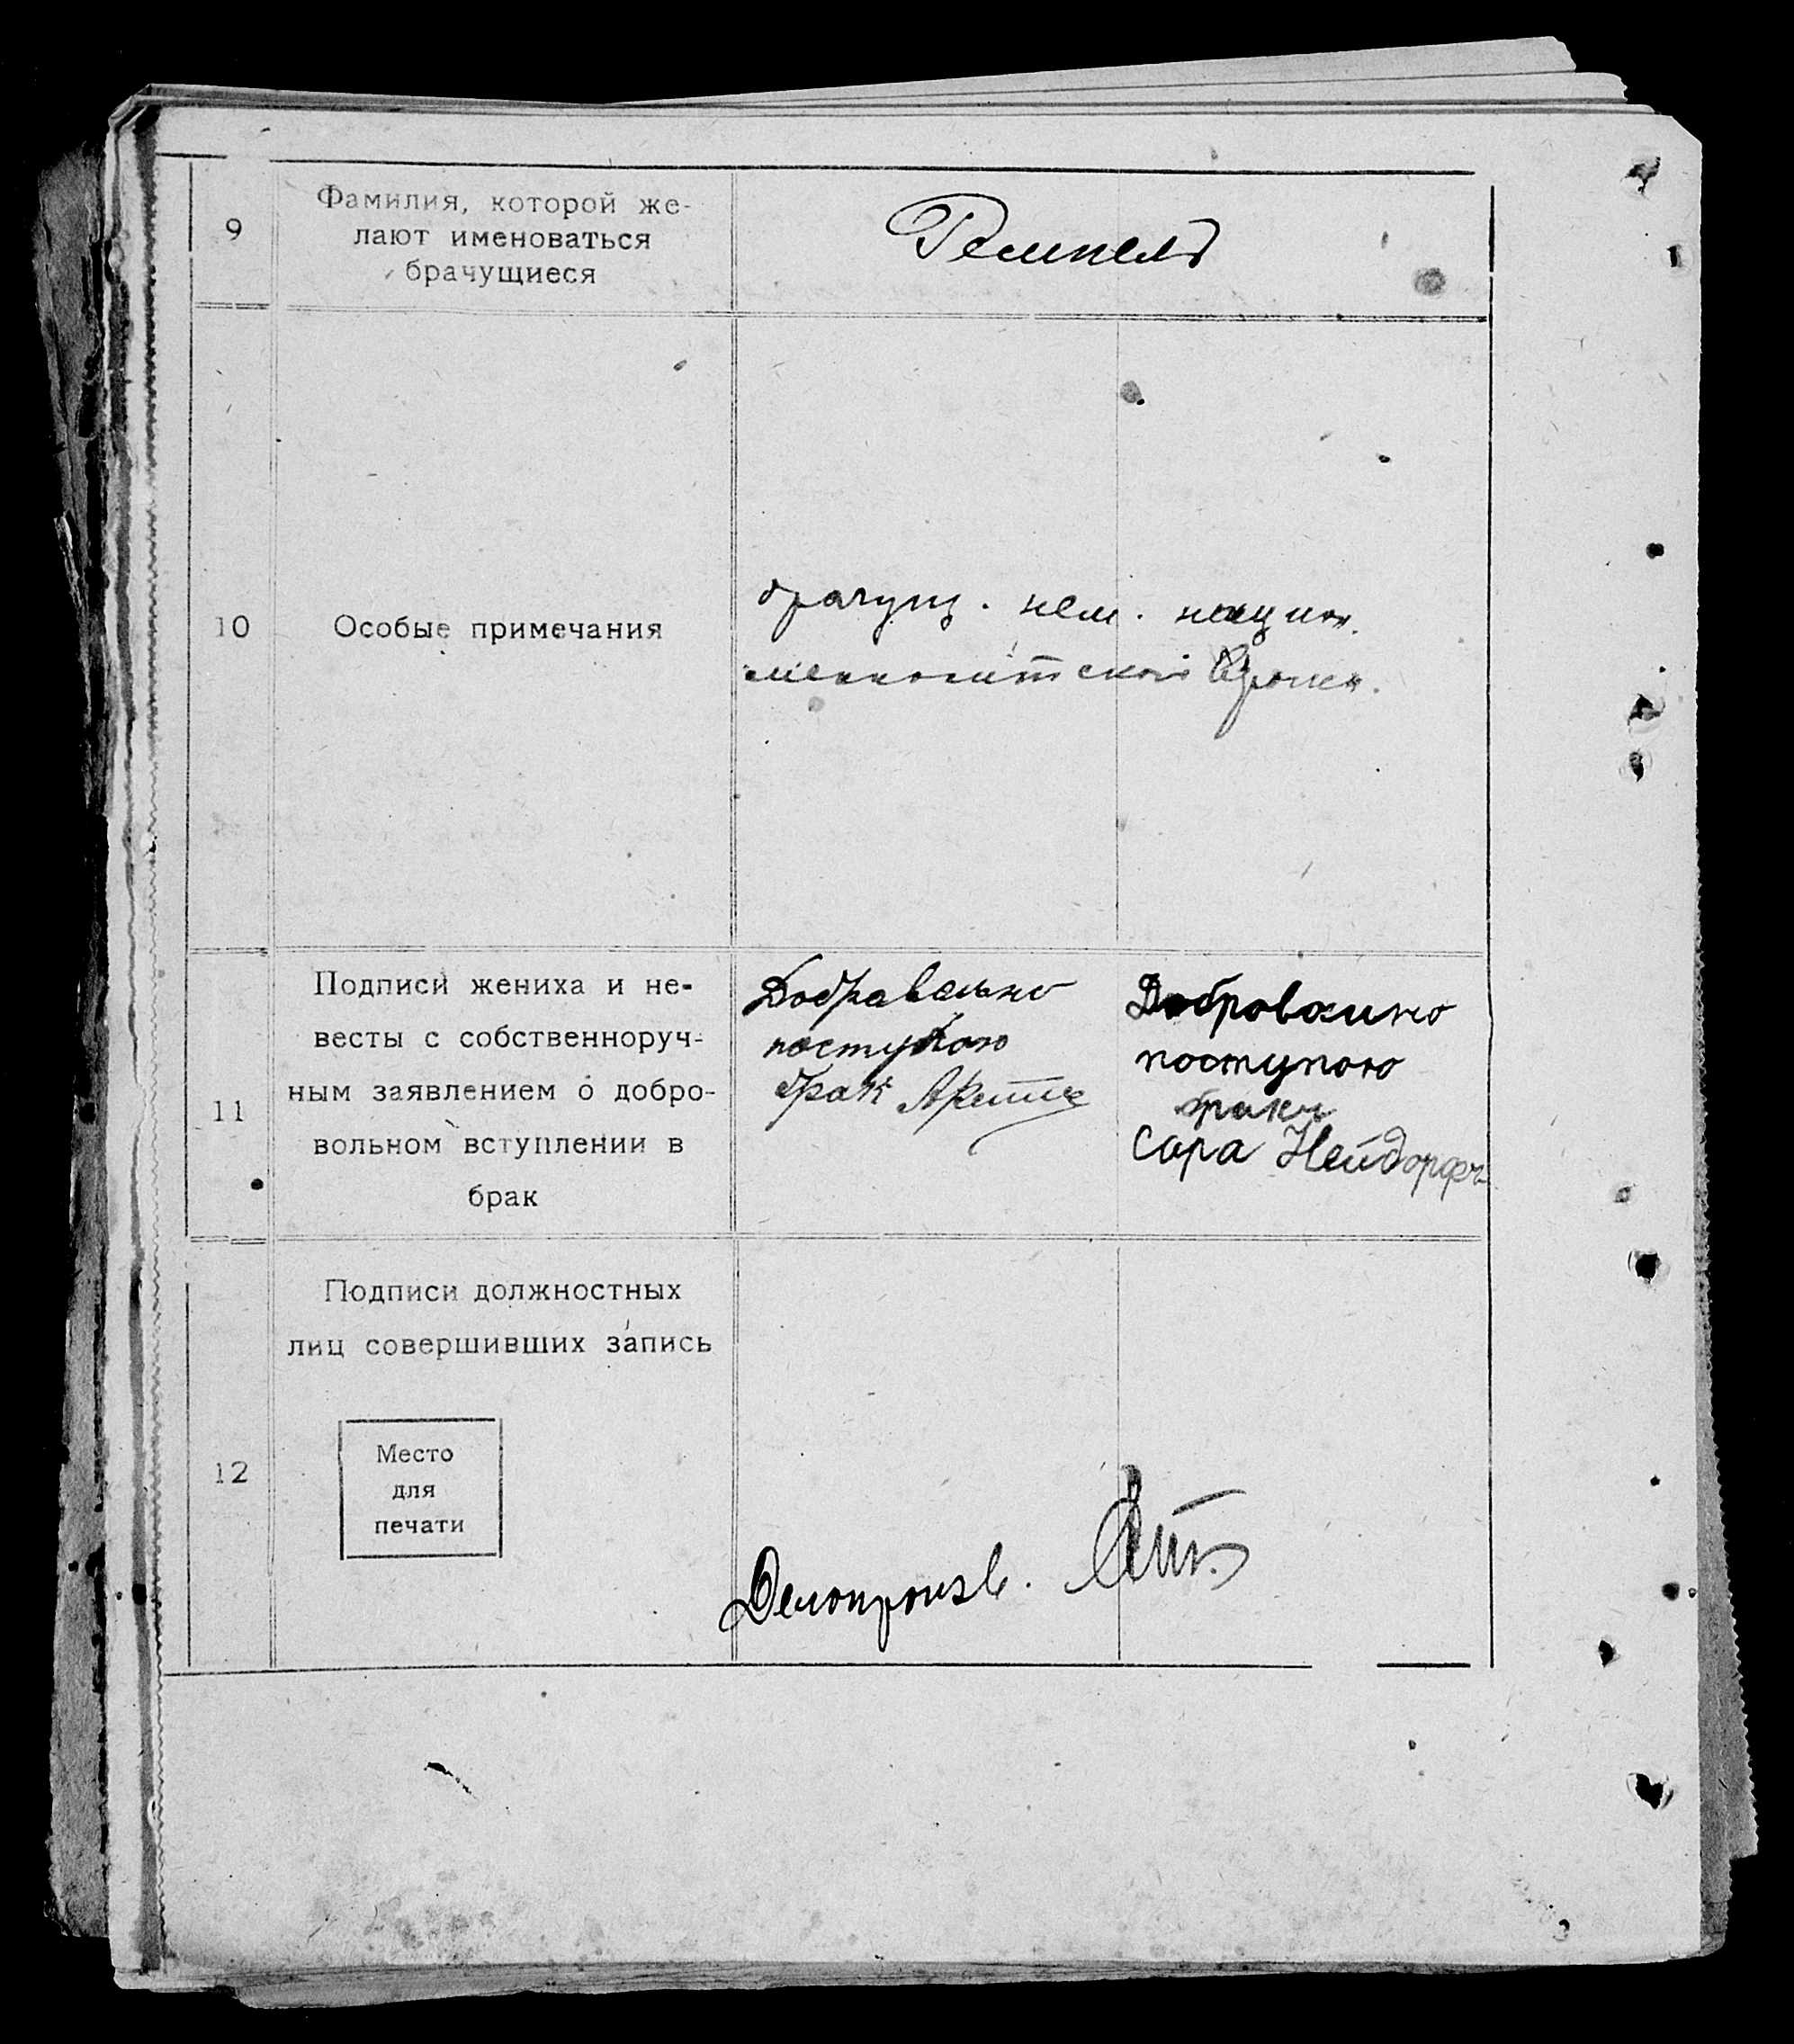 9
Фамилия, которой же-
лают именоваться
брачущиеся
Ремпель
10
Особые примечания
брачущ. нем. национ.
меннонитской
11
Подписи жениха и не-
весты с собственноруч-
ным заявлением о добро-
вольном вступлении в
брак
Добравольно
поступаю
брак
Добровольно
поступою
браки
Сара Нейдорф
12
Подписи должностных
лиц совершивших запись
Место
для
печати
Делопроизв.